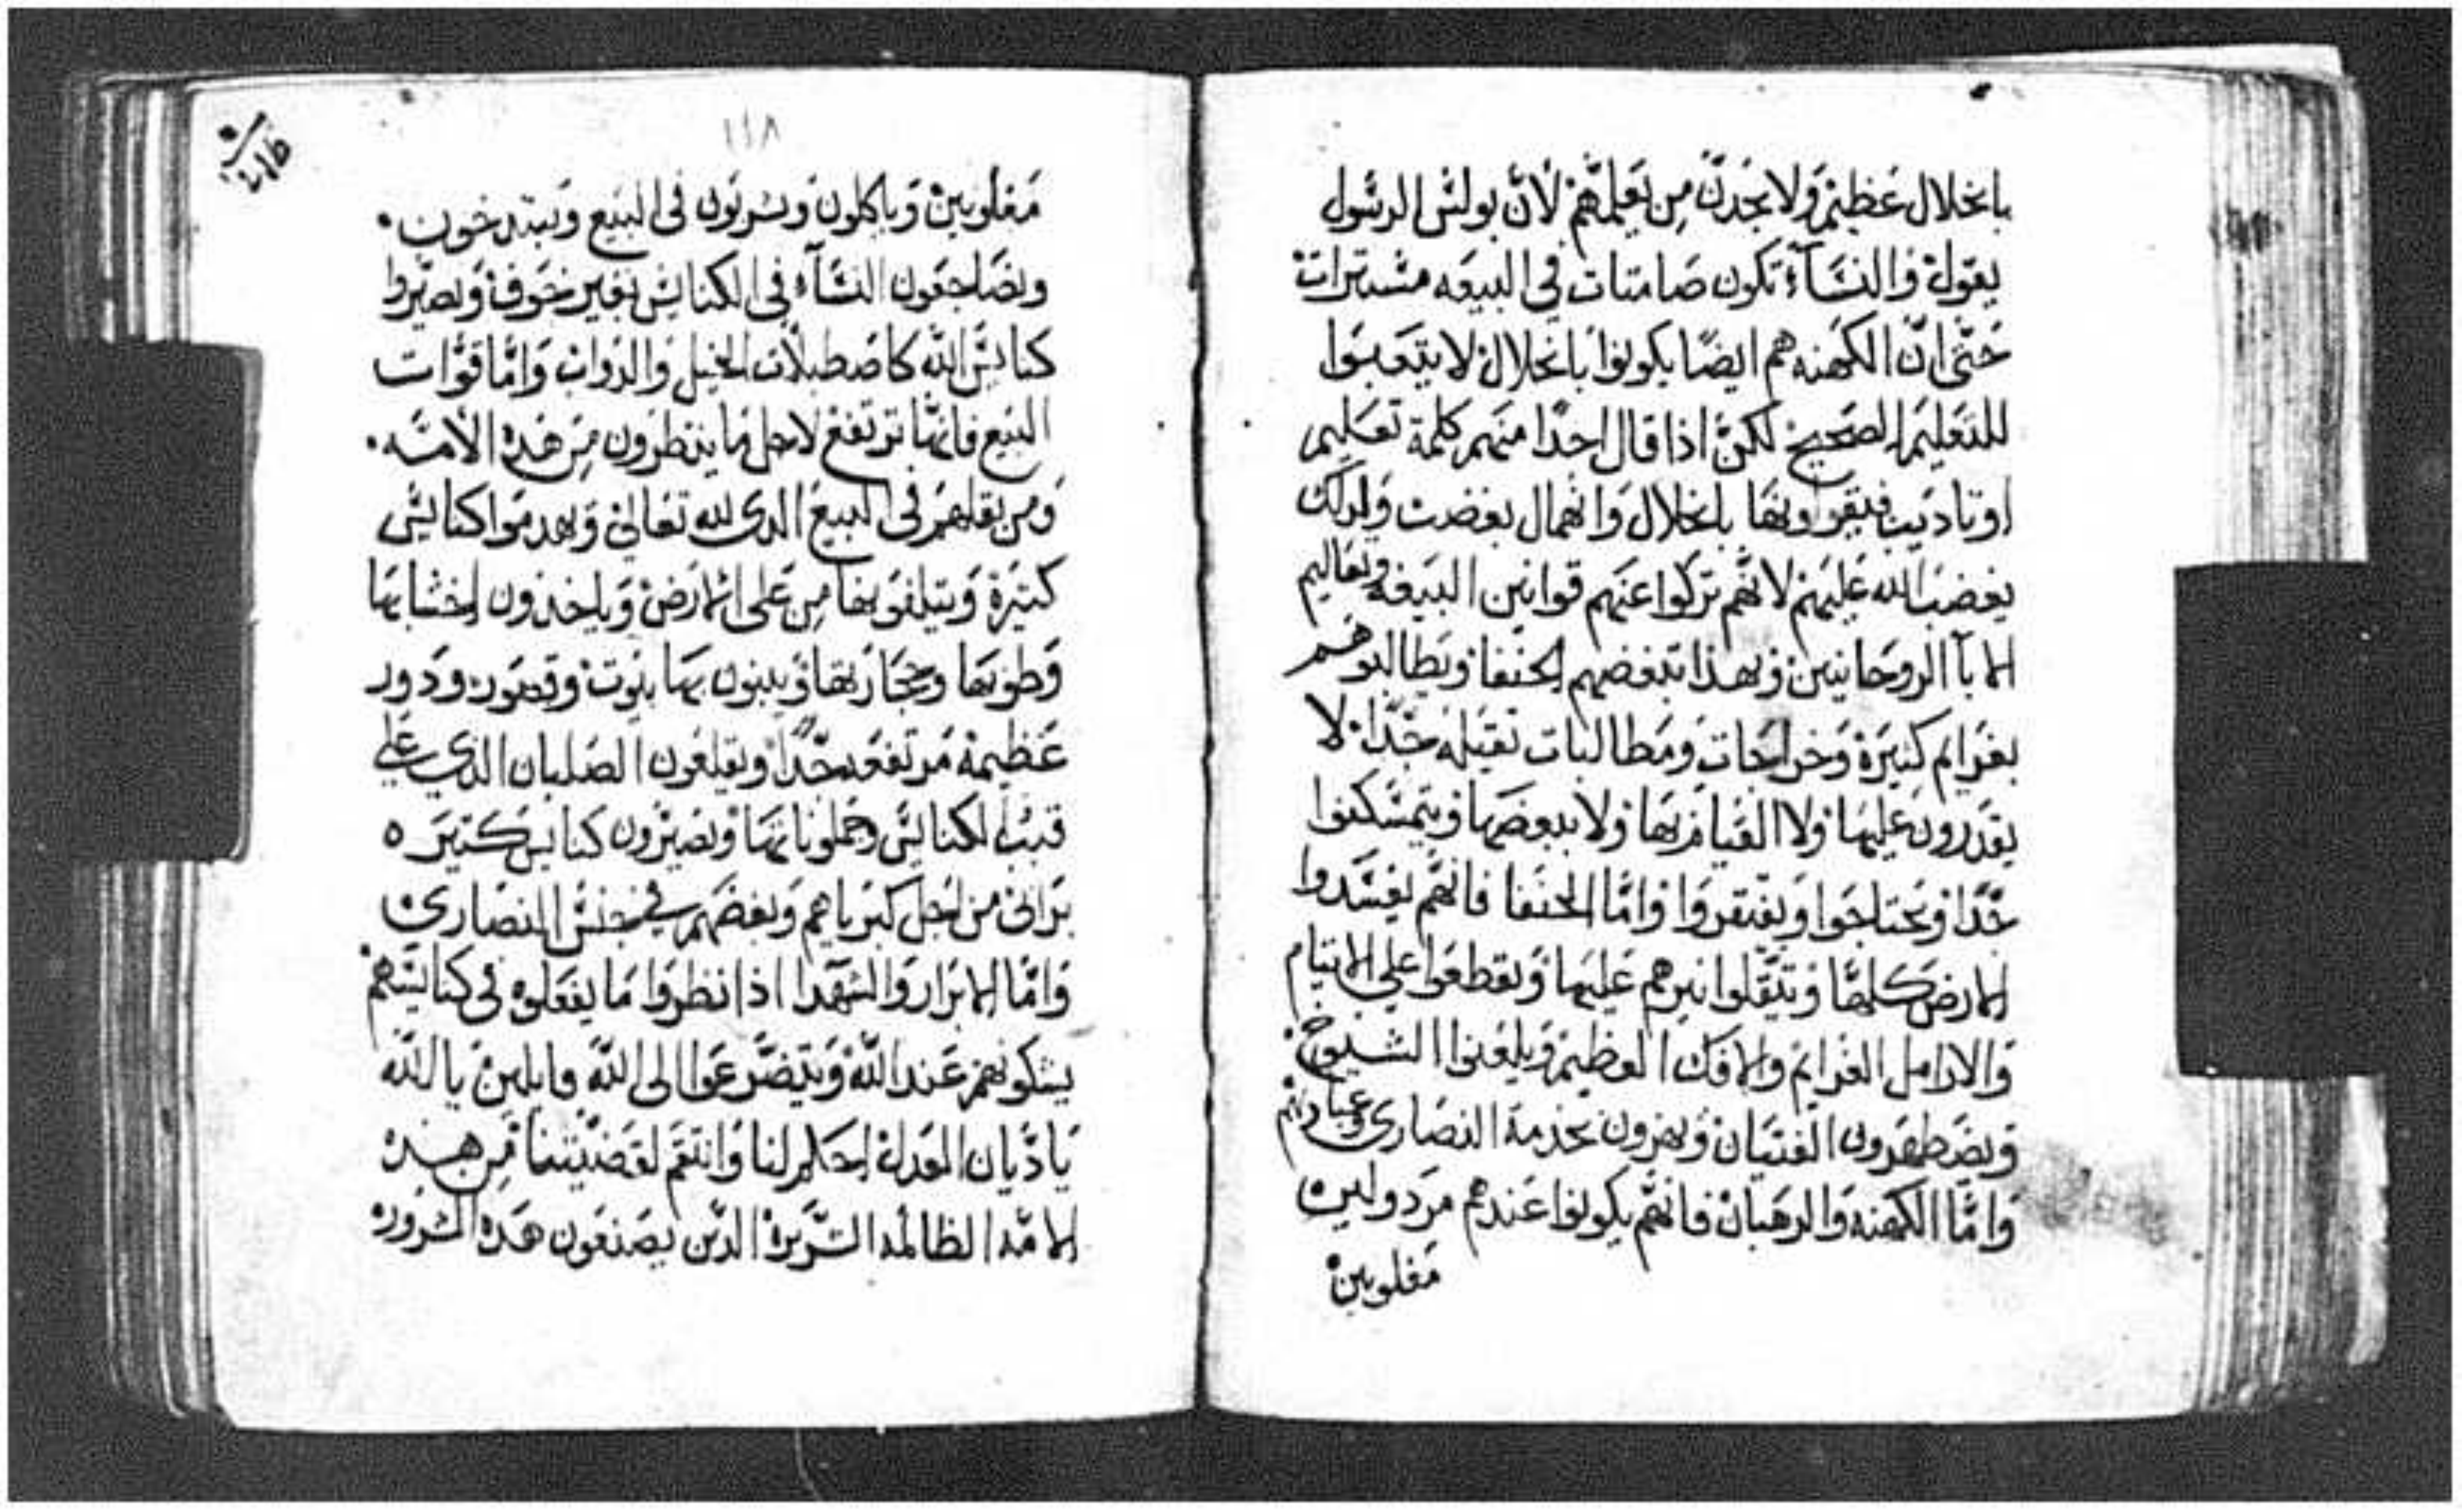 بانحلال عظيم ولا يجدن من يعلمهم لان بولس الرسول
يقول والنسآء تكون صامتات في البيعه مستترات
حتى ان الكهنه هم ايضا يكونوا بانحلال لا يتعبوا
للتعليم الصحيح لكن اذا قال احدا منهم كلمة تعليم
او تاديب فيقراونها بانحلال وانهمال بغضب ولدلك
يغضب الله عليهم لانهم تركوا عنهم قوانين البيعه وتعاليم
الابآ الروحانيين وبهذا تبغضهم الحنفا ويطالبوهم
بغرايم كتيرة وخراجات ومطالبات تقيله جدا لا
يقدرون عليها ولا القيام بها ولا ببعضها ويتمسكنوا
جدا ويحتاجوا ويفتقروا واما الحنفا فانهم يفسدوا
الارض كلها ويتقلوا نيرهم عليها ويقطعوا علي الايتام
والارامل الغرايم والافك العظيم ويلعنوا الشيوخ
ويضطهدون الفتيان ويهزون بخدمة النصارى وعبادتهم
واما الكهنه والرهبان فانهم يكونوا عندهم مردولين
مغلوبين
١١٨
مغلوبين وياكلون ويشربون في البيع ويتبدخون
ويضاجعون النسآء في الكنايس بغير خوف ويصيروا
كنايس الله كاصطبلات الخيل والدواب واما قوات
البيع فانها ترتفع لاجل ما ينتظرون من هذه الامه
ومن بقلهم في البيع الدى لله تعالى ويهدموا كنايس
كتيرة ويتلفونها من على الارض وياخذون اخشابها
وطوبها وحجارتها ويبنون بها بيوت وقصور ودور
عظيمة مرتفعه جدا ويقلعون الصلبان الذي علي
قبب الكنايس وجملوناتها ويصيرون كنايس كتيره
براني من اجل كبرياهم وبغضهم في جنس النصارى
واما الابرار والشهدا اذا نظروا ما يفعلوه في كنايسهم
يشكونهم عند الله ويتضرعوا الى الله قايلين يا الله
يا ديان العدل احكم لنا وانتقم لقضيتنا من هذه
الامه الظالمه الشريرة الدين يصنعون هذه الشرور